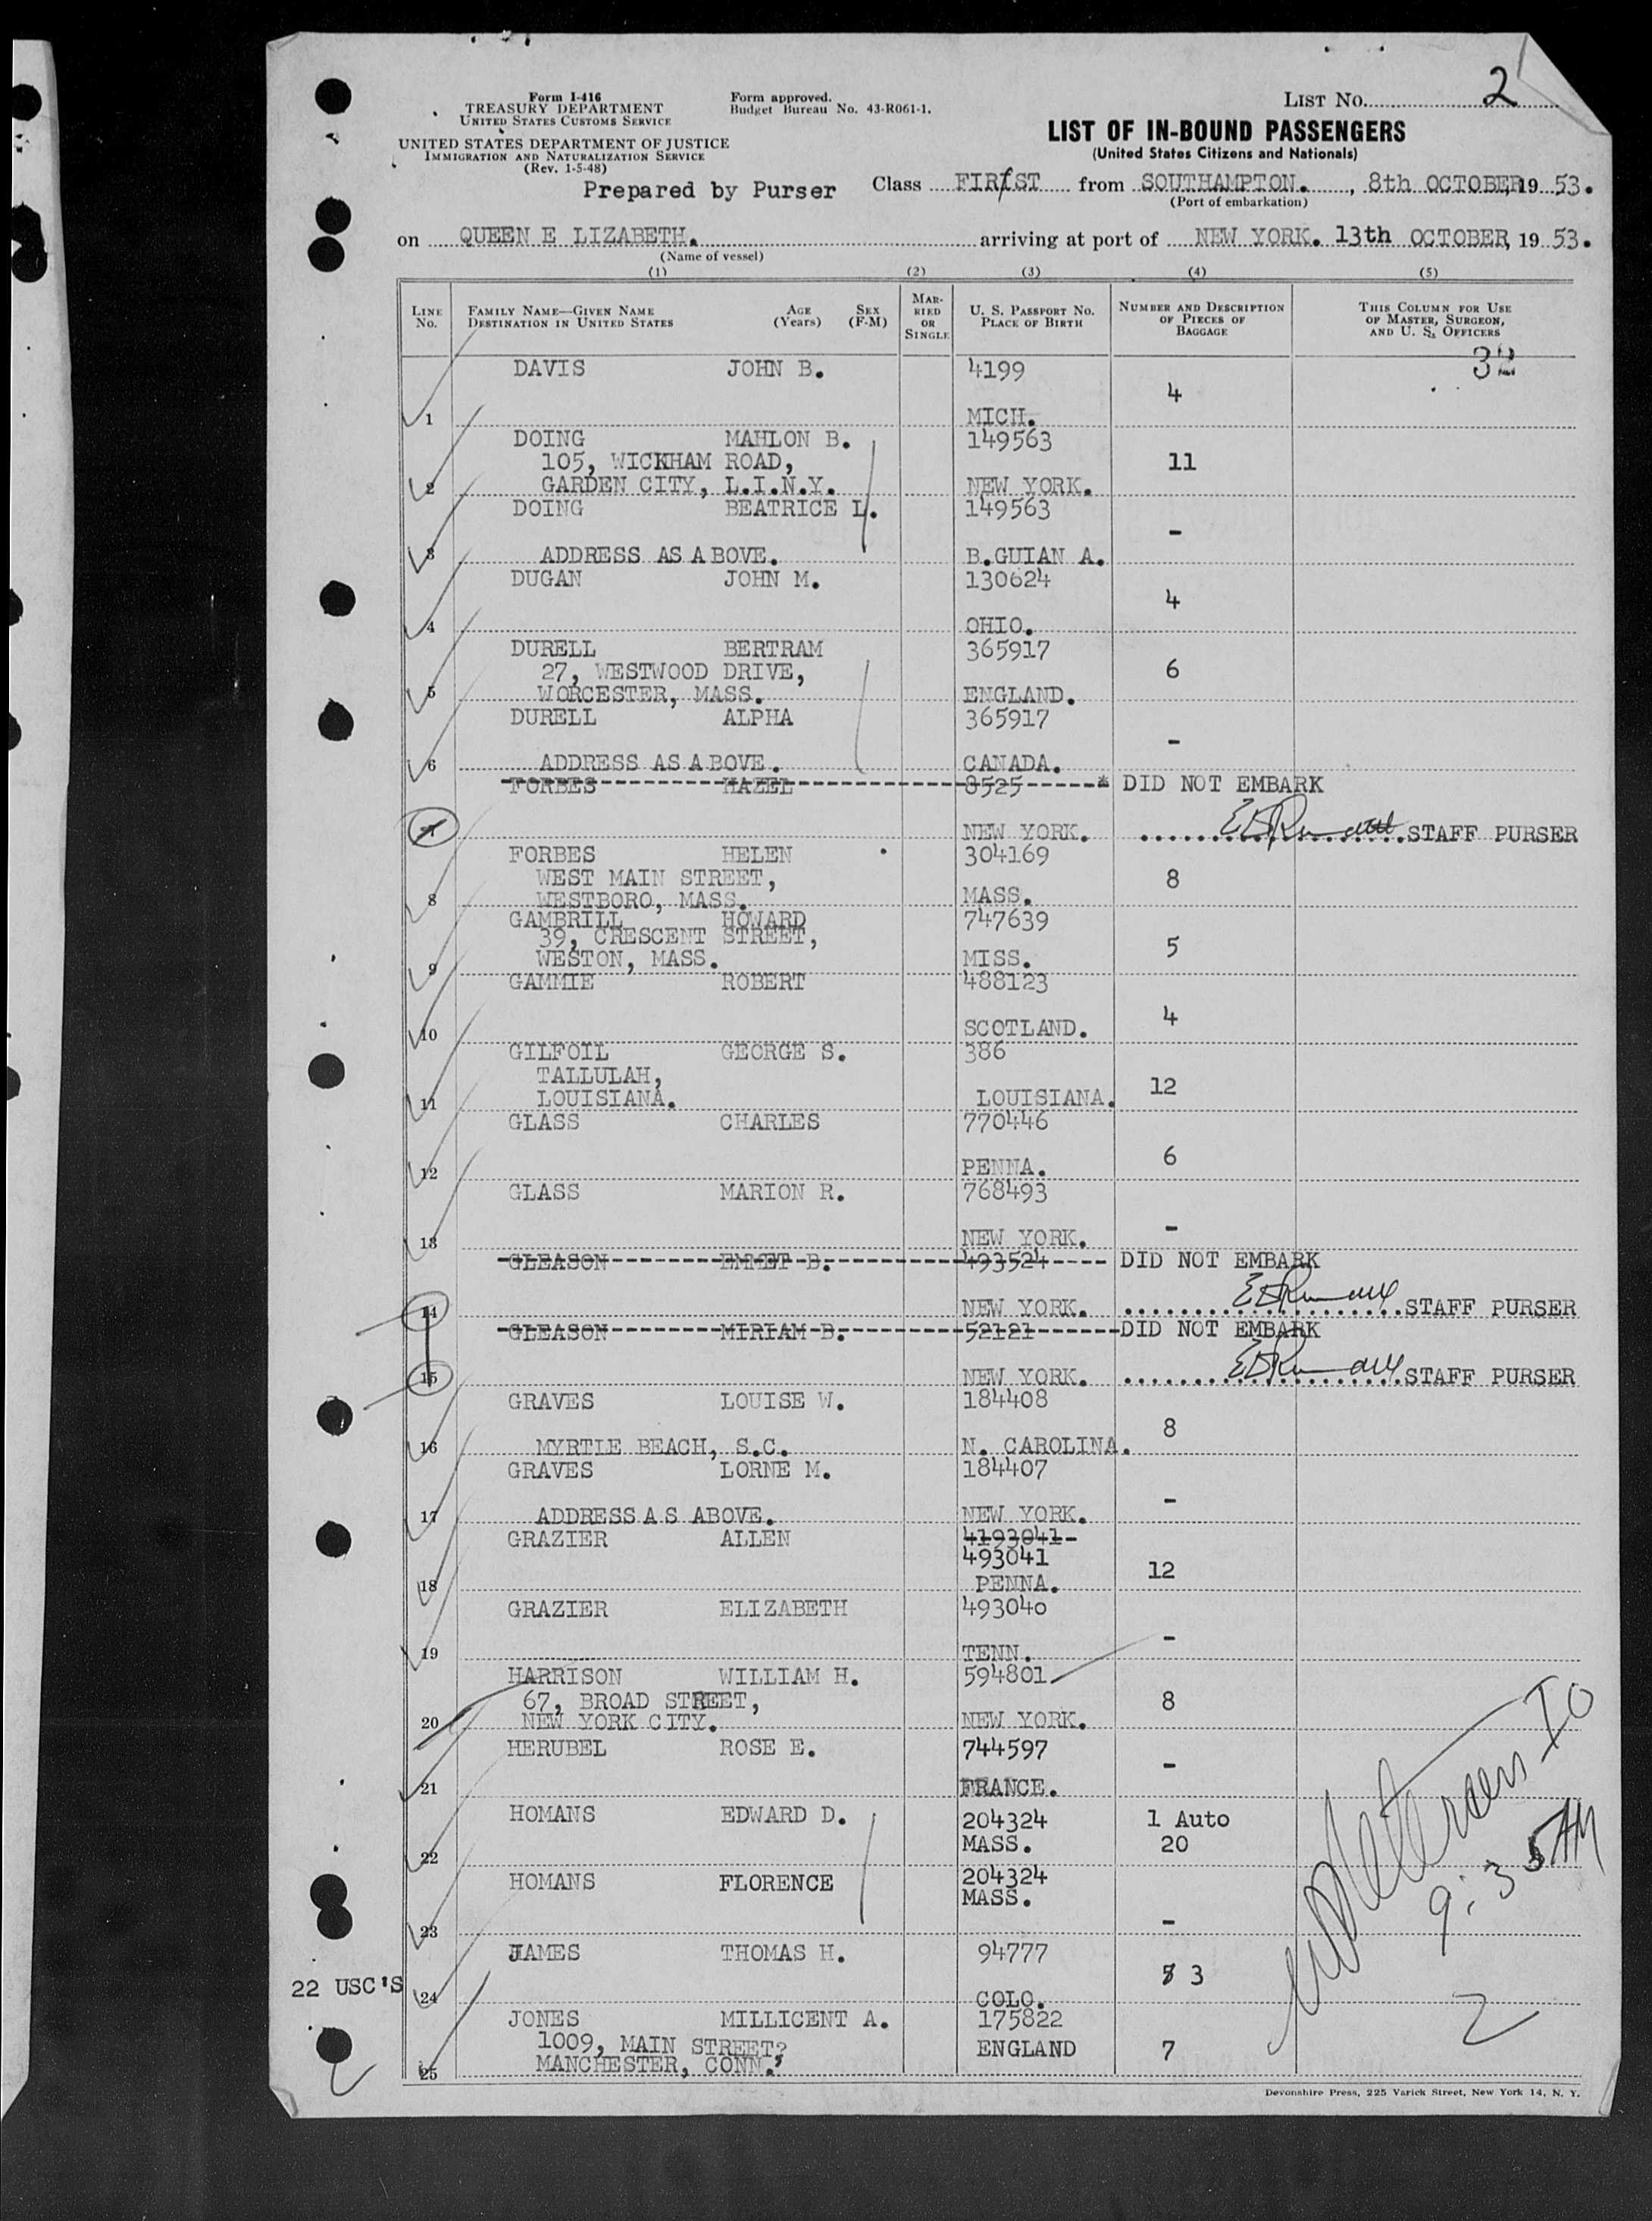 Form I-416
TREASURY DEPARTMENT
UNITED STATES CUSTOMS SERVICE
UNITED STATES DEPARTMENT OF JUSTICE
IMMIGRATION AND NATURALIZATION SERVICE
(Rev. 1-5-48)
Form approved.
Budget Bureau No. 43-R061-1.
LIST NO. 2
LIST OF IN-BOUND PASSENGERS
(United States Citizens and Nationals)
Prepared by Purser
Class FIRST from SOUTHAMPTON. , 8th OCTOBER, 19 53.
(Port of embarkation)
on QUEEN E LIZABETH. arriving at port of NEW YORK. 13th OCTOBER, 19 53.
(Name of vessel)
(1) (2) (3) (4) (5)
LINE NO.
FAMILY NAME—GIVEN NAME DESTINATION IN UNITED STATES
AGE (Years)
SEX (F-M)
MARRIED OR SINGLE
U. S. PASSPORT NO. PLACE OF BIRTH
NUMBER AND DESCRIPTION OF PIECES OF BAGGAGE
THIS COLUMN FOR USE OF MASTER, SURGEON, AND U. S. OFFICERS
32
DAVIS JOHN B. 4199
4
1 MICH.
DOING MAHLON B. 149563
105, WICKHAM ROAD, 11
2 GARDEN CITY, L.I.N.Y. NEW YORK.
DOING BEATRICE L. 149563
-
3 ADDRESS AS A BOVE. B.GUIAN A.
DUGAN JOHN M. 130624
4
4 OHIO.
DURELL BERTRAM 365917
27, WESTWOOD DRIVE, 6
5 WORCESTER, MASS. ENGLAND.
DURELL ALPHA 365917
-
6 ADDRESS AS A BOVE. CANADA.
FORBES HAZEL 8525 * DID NOT EMBARK
7 NEW YORK. STAFF PURSER
FORBES HELEN 304169
WEST MAIN STREET, 8
8 WESTBORO, MASS. MASS.
GAMBRILL HOWARD 747639
39, CRESCENT STREET, 5
9 WESTON, MASS. MISS.
GAMMIE ROBERT 488123
4
10 SCOTLAND.
GILFOIL GEORGE S. 386
TALLULAH, 12
11 LOUISIANA. LOUISIANA.
GLASS CHARLES 770446
6
12 PENNA.
GLASS MARION R. 768493
-
13 NEW YORK.
GLEASON EMMET B. 493524 DID NOT EMBARK
14 NEW YORK. STAFF PURSER
GLEASON MIRIAM B. 52121 DID NOT EMBARK
15 NEW YORK. STAFF PURSER
GRAVES LOUISE W. 184408
8
16 MYRTLE BEACH, S.C. N. CAROLINA.
GRAVES LORNE M. 184407
-
17 ADDRESS A S ABOVE. NEW YORK.
GRAZIER ALLEN 4193041-
493041 12
18 PENNA.
GRAZIER ELIZABETH 493040
-
19 TENN.
HARRISON WILLIAM H. 594801
67, BROAD STREET, 8
20 NEW YORK CITY. NEW YORK.
HERUBEL ROSE E. 744597
-
21 FRANCE.
HOMANS EDWARD D. 204324 1 Auto
22 MASS. 20
HOMANS FLORENCE 204324
MASS.
23 -
JAMES THOMAS H. 94777
3
22 USC'S 24 COLO.
JONES MILLICENT A. 175822
1009, MAIN STREET? ENGLAND 7
25 MANCHESTER, CONN.
Petersen IO
9:35 AM
2
Devonshire Press, 225 Varick Street, New York 14, N. Y.